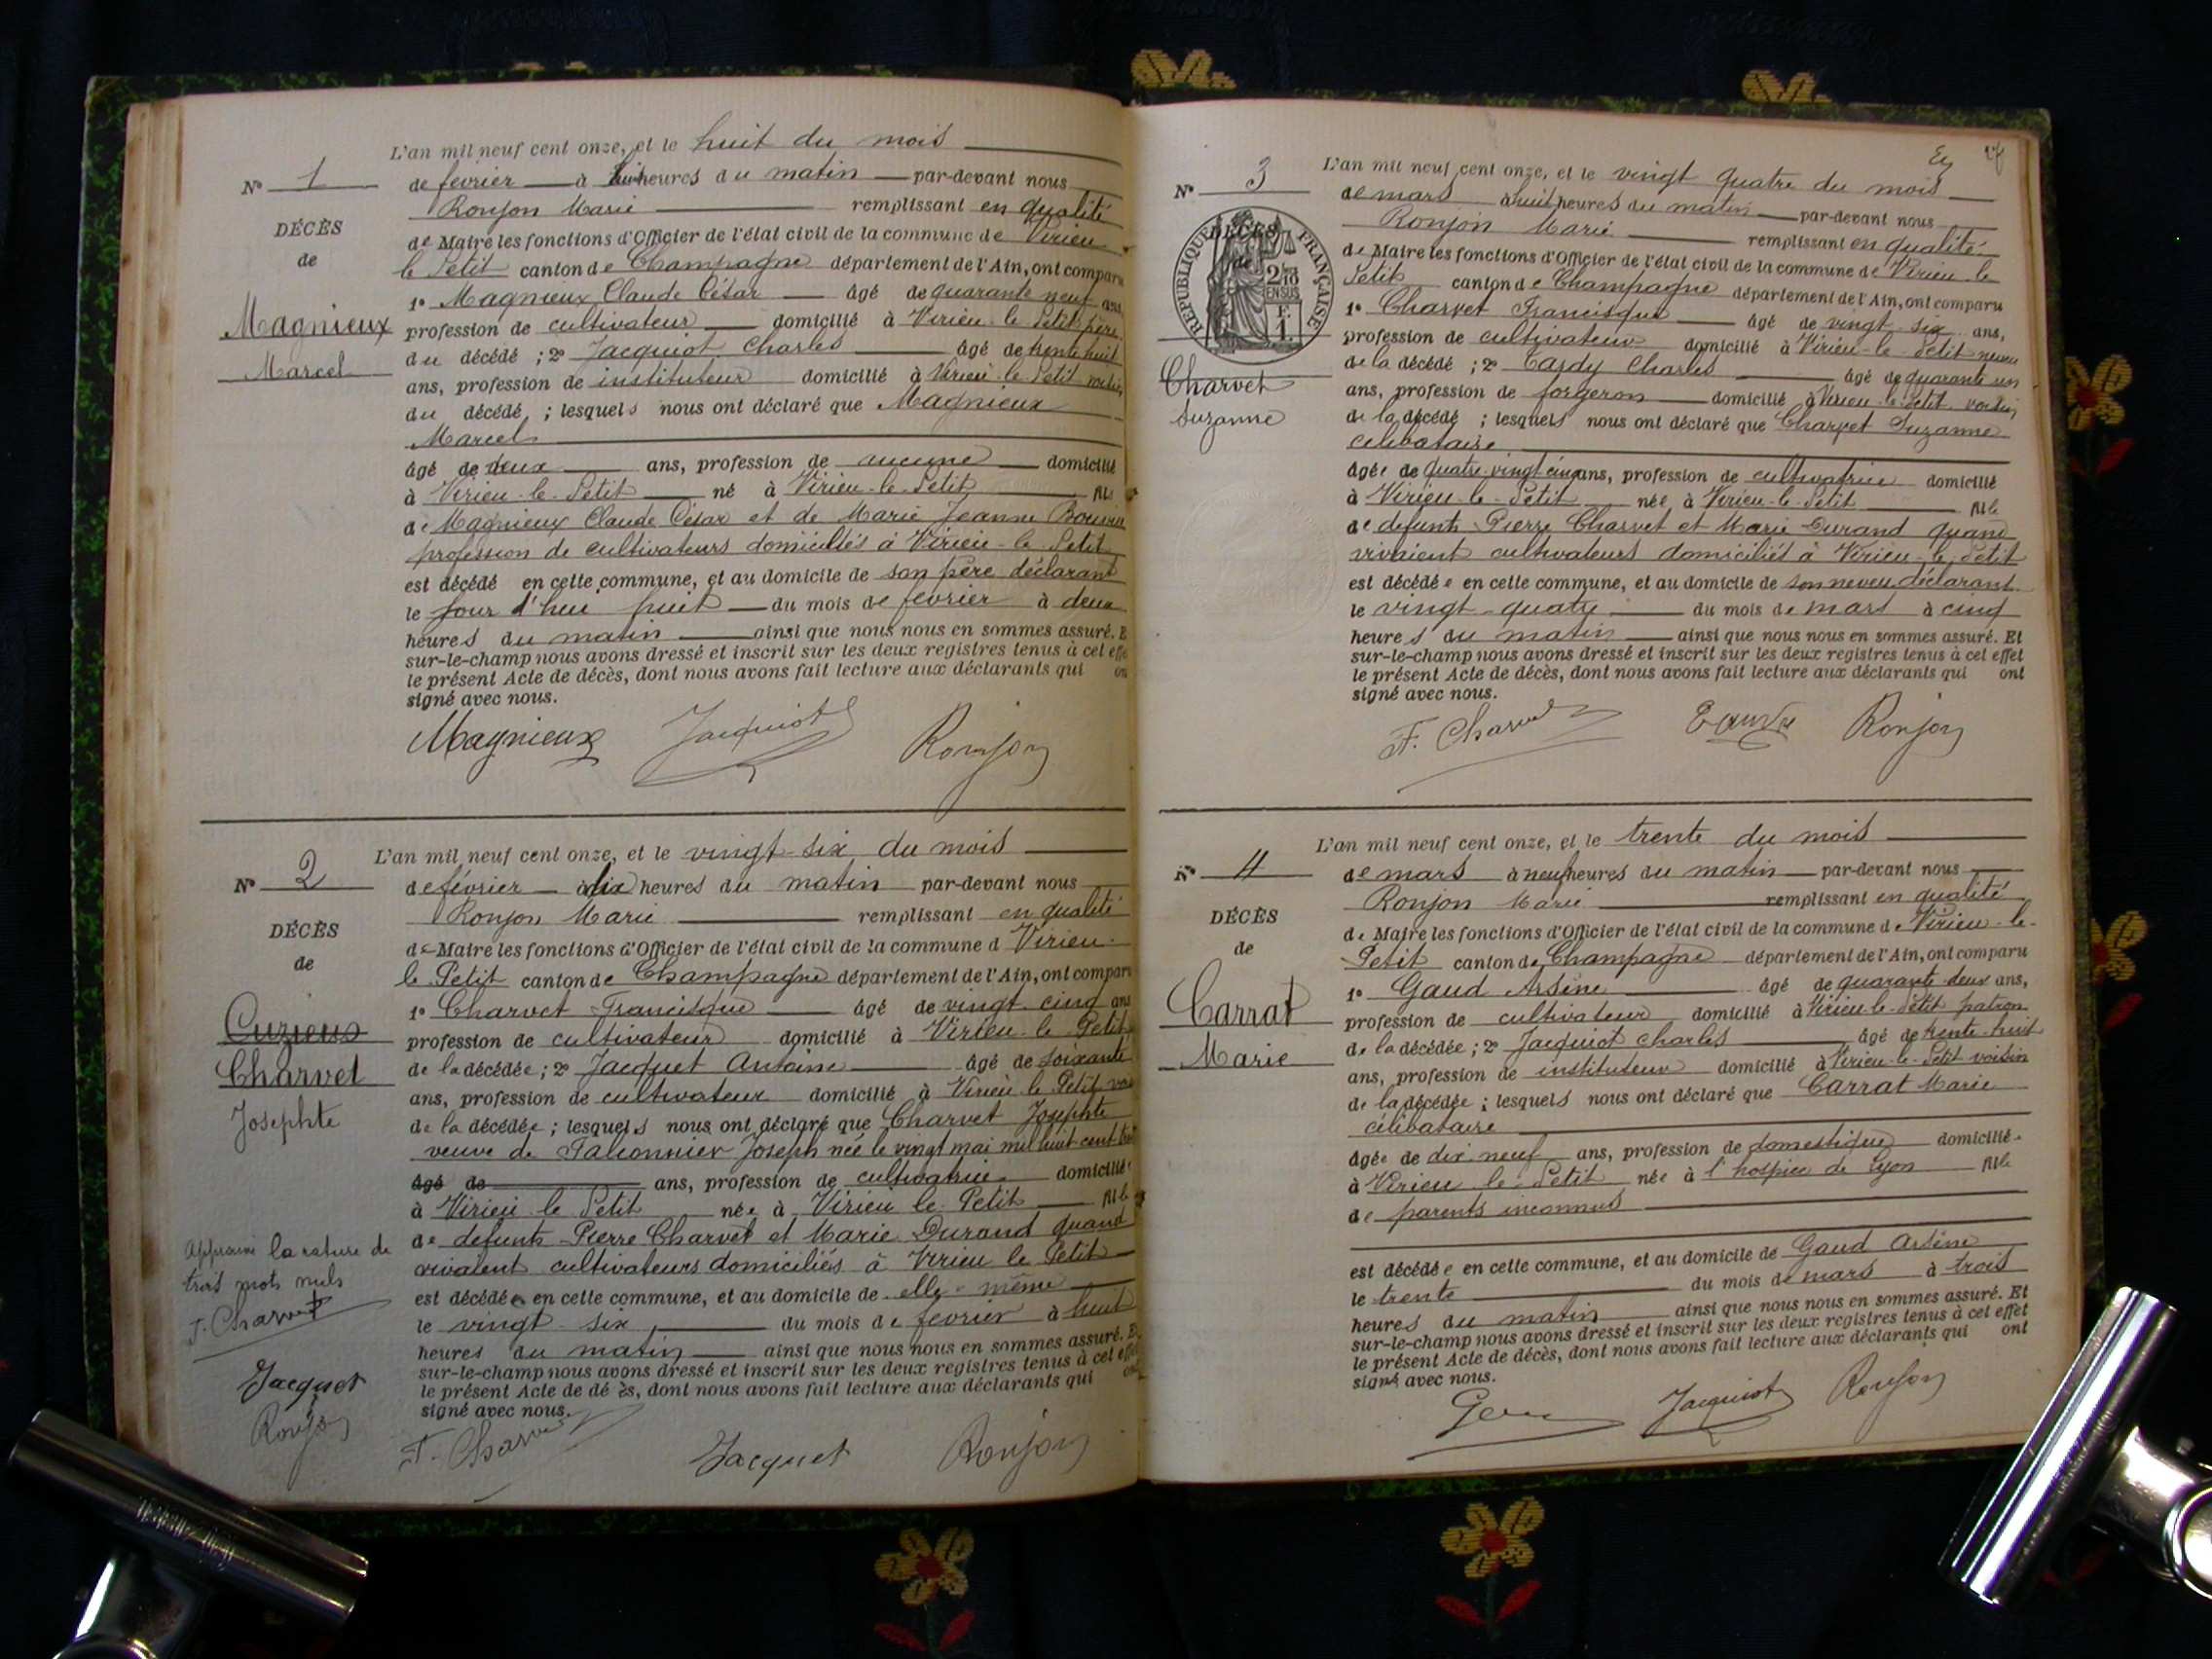 L'an mil neuf cent onze, et le huit du mois
N° 1
de février à huit heures du matin par-devant nous
Ronjon Marie remplissant en qualité
DÉCÈS
de Maire les fonctions d'Officier de l'état civil de la commune de Virieu
de
le Petit canton de Champagne département de l'Ain, ont comparu
1° Magnieux Claude César âgé de quarante neuf ans,
Magnieux
profession de cultivateur domicilié à Virieu-le-Petit père
Marcel
du décédé ; 2° Jacquiot Charles âgé de trente huit
ans, profession de instituteur domicilié à Virieu le Petit voisin
du décédé ; lesquels nous ont déclaré que Magnieux
Marcel
âgé de deux ans, profession de aucune domicilié
à Virieu-le-Petit né à Virieu-le-Petit fils
de Magnieux Claude César et de Marie Jeanne
profession de cultivateurs domiciliés à Virieu-le-Petit
est décédé en cette commune, et au domicile de son père déclarant
le jour d'hui huit du mois de février à deux
heures du matin ainsi que nous nous en sommes assuré. E
sur-le-champ nous avons dressé et inscrit sur les deux registres tenus à cet effe
le présent Acte de décès, dont nous avons fait lecture aux déclarants qui on
signé avec nous.
Magnieux Jacquiot Ronjon
L'an mil neuf cent onze, et le vingt-six du mois
N° 2
de février à dix heures du matin par-devant nous
Ronjon Marie remplissant en qualité
DÉCÈS
de Maire les fonctions d'Officier de l'état civil de la commune d Virieu-
de
le Petit canton de Champagne département de l'Ain, ont compar
1° Charvet Francisque âgé de vingt-cinq ans
Cuzieux
profession de cultivateur domicilié à Virieu-le-Petit
Charvet
de la décédée ; 2° Jacquet Antoine âgé de soixante
Josephte
ans, profession de cultivateur domicilié à Virieu le Petit voi
de la décédée ; lesquels nous ont déclaré que Charvet Josephte
veuve de Falconnier Joseph née le vingt mai mil huit cent
âgé de ans, profession de cultivatrice domiciliée
à Virieu le Petit née à Virieu le Petit fille
de defunts Pierre Charvet et Marie Durand quand
vivaient cultivateurs domiciliés à Virieu le Petit
est décédée en cette commune, et au domicile de elle-même
le vingt-six du mois de février à huit
heures du matin ainsi que nous nous en sommes assuré. E
sur-le-champ nous avons dressé et inscrit sur les deux registres tenus à cet effe
le présent Acte de dé ès, dont nous avons fait lecture aux déclarants qui
signé avec nous.
la rature de
trois mots nuls
F. Charvet
Jacquet
Ronjon
F. Charvet Jacquet Ronjon
L'an mil neuf cent onze, et le vingt quatre du mois
N° 3
de mars à huit heures du matin par-devant nous
Ronjon Marie remplissant en qualité
DÉCÈS
de
RÉPUBLIQUE FRANÇAISE
2/10 EN SUS
F. 1.
de Maire les fonctions d'Officier de l'état civil de la commune de Virieu-le
Petit canton de Champagne département de l'Ain, ont comparu
1° Charvet Francisque âgé de vingt-six ans,
profession de cultivateur domicilié à Virieu-le-Petit neveu
de la décédé ; 2° Tardy Charles âgé de quarante un
Charvet
ans, profession de forgeron domicilié à Virieu-le-Petit voisin
Suzanne
de la décédé ; lesquels nous ont déclaré que Charvet Suzanne
célibataire
âgée de quatre-vingt cinq ans, profession de cultivatrice domicilié
à Virieu-le-Petit née à Virieu-le-Petit fille
de defunts Pierre Charvet et Marie Durand quand
vivaient cultivateurs domiciliés à Virieu-le-Petit
est décédée en cette commune, et au domicile de son neveu déclarant
le vingt-quatre du mois de mars à cinq
heures du matin ainsi que nous nous en sommes assuré. Et
sur-le-champ nous avons dressé et inscrit sur les deux registres tenus à cet effet
le présent Acte de décès, dont nous avons fait lecture aux déclarants qui ont
signé avec nous.
F. Charvet Ronjon
L'an mil neuf cent onze, et le trente du mois
N° 4
de mars à neuf heures du matin par-devant nous
Ronjon Marie remplissant en qualité
DÉCÈS
de Maire les fonctions d'Officier de l'état civil de la commune de Virieu-le-
de
Petit canton de Champagne département de l'Ain, ont comparu
1° Gaud Arsène âgé de quarante-deux ans,
Carrat
profession de cultivateur domicilié à Virieu-le-Petit patron
Marie
de la décédée ; 2° Jacquiot Charles âgé de trente-huit
ans, profession de instituteur domicilié à Virieu-le-Petit voisin
de la décédée ; lesquels nous ont déclaré que Carrat Marie
célibataire
âgée de dix-neuf ans, profession de domestique domiciliée
à Virieu-le-Petit née à l'hospice de Lyon fille
de parents inconnus
est décédée en cette commune, et au domicile de Gaud Arsène
le trente du mois de mars à trois
heures du matin ainsi que nous nous en sommes assuré. Et
sur-le-champ nous avons dressé et inscrit sur les deux registres tenus à cet effet
le présent Acte de décès, dont nous avons fait lecture aux déclarants qui ont
signé avec nous.
Jacquiot Ronjon